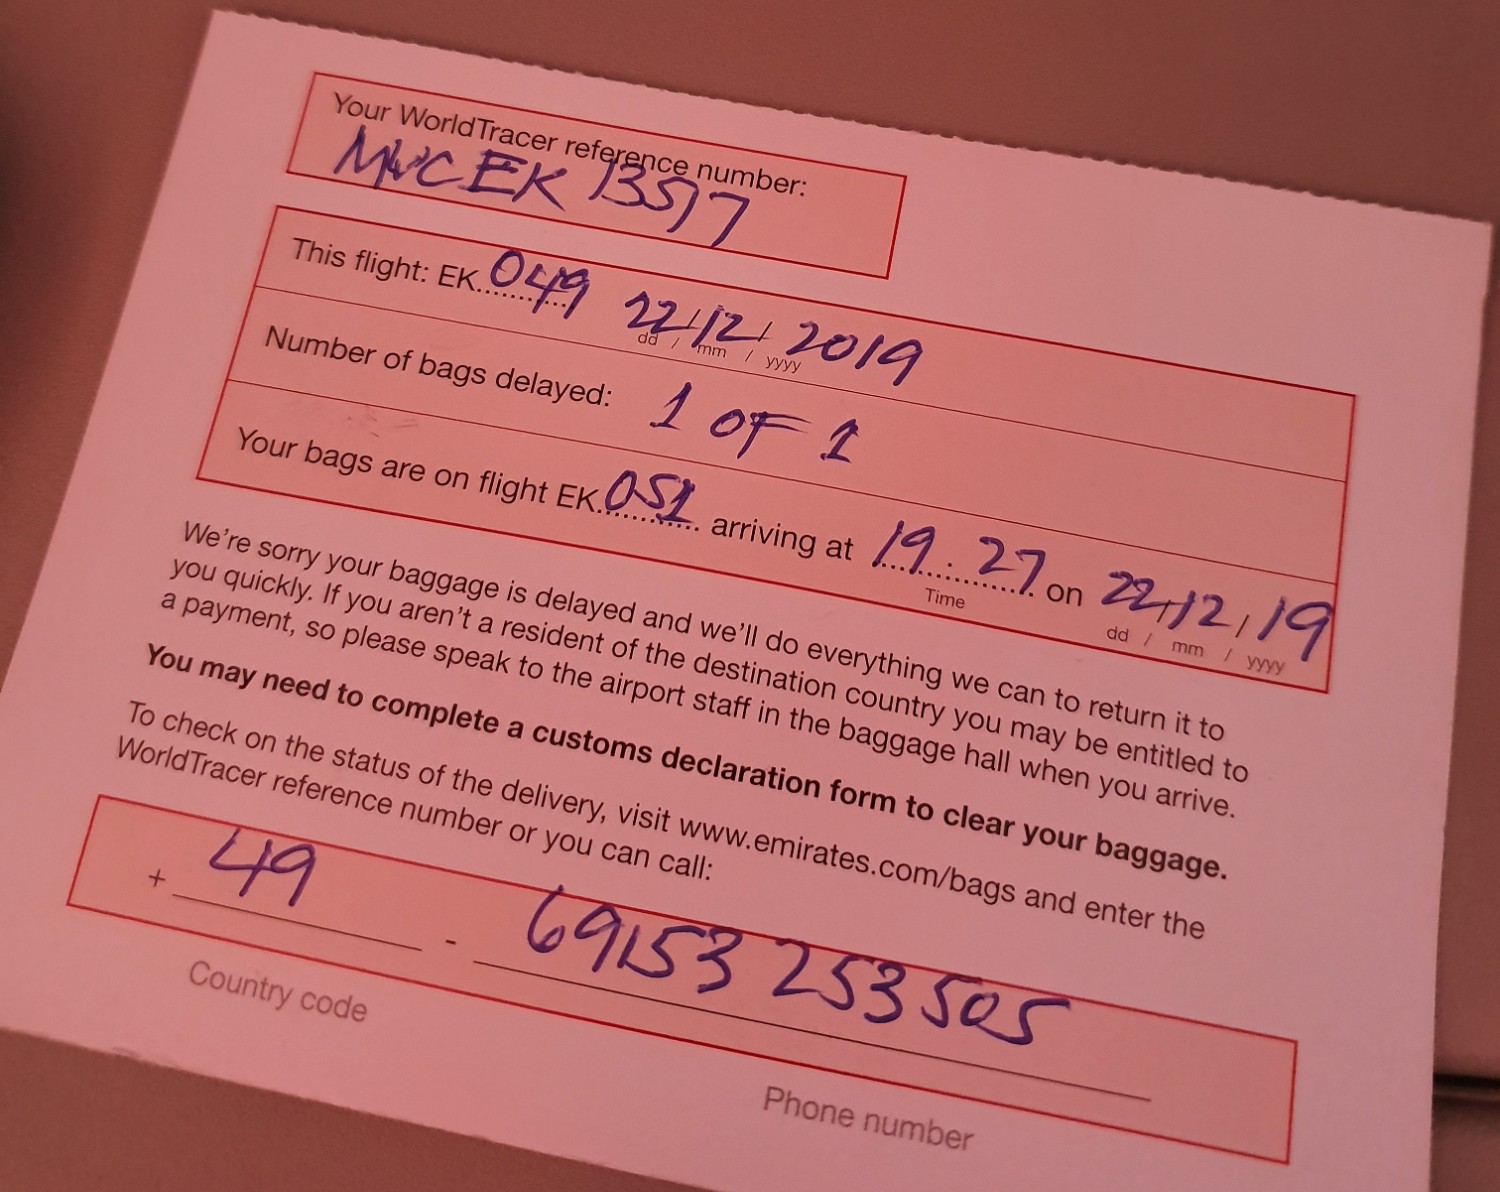 Your WorldTracer reference number:
MUCEK 13517
This flight: EK 049 22/12/2019
dd / mm / yyyy
Number of bags delayed: 1 OF 1
Your bags are on flight EK 051 arriving at 19:27 on 22/12/19
Time dd / mm / yyyy
We're sorry your baggage is delayed and we'll do everything we can to return it to
you quickly. If you aren't a resident of the destination country you may be entitled to
a payment, so please speak to the airport staff in the baggage hall when you arrive.
You may need to complete a customs declaration form to clear your baggage.
To check on the status of the delivery, visit www.emirates.com/bags and enter the
WorldTracer reference number or you can call:
+ 49 - 69153 253505
Country code
Phone number